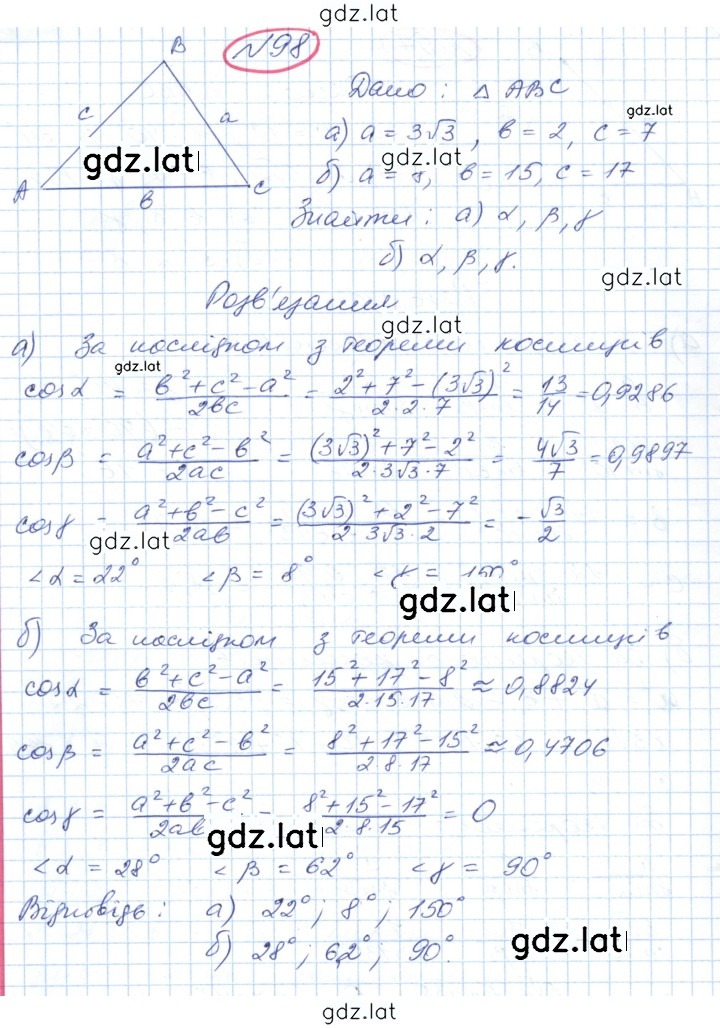 gdz.lat
№98
B
c
a
A
C
в
gdz.lat
Дано : △ ABC
gdz.lat
а) a = 3√3 , в = 2, c = 7
gdz.lat
б) a = 8, в = 15, c = 17
Знайти : а) α, β, γ
б) α, β, γ.
gdz.lat
Розв'язання
gdz.lat
а) За наслідком з теореми косинусів
gdz.lat
cosα = (в²+c²-a²)/2вc = (2²+7²-(3√3)²)/(2·2·7) = 13/14 = 0,9286
cosβ = (a²+c²-в²)/2ac = ((3√3)²+7²-2²)/(2·3√3·7) = 4√3/7 = 0,9897
cosγ = (a²+в²-c²)/2aв = ((3√3)²+2²-7²)/(2·3√3·2) = -√3/2
gdz.lat
gdz.lat
<α = 22° <β = 8° <γ = 150°
gdz.lat
б) За наслідком з теореми косинусів
cosα = (в²+c²-a²)/2вc = (15²+17²-8²)/(2·15·17) ≈ 0,8824
cosβ = (a²+c²-в²)/2ac = (8²+17²-15²)/(2·8·17) ≈ 0,4706
cosγ = (a²+в²-c²)/2aв = (8²+15²-17²)/(2·8·15) = 0
gdz.lat
<α = 28° <β = 62° <γ = 90°
Відповідь : а) 22°; 8°; 150°
б) 28°; 62°; 90°.
gdz.lat
gdz.lat